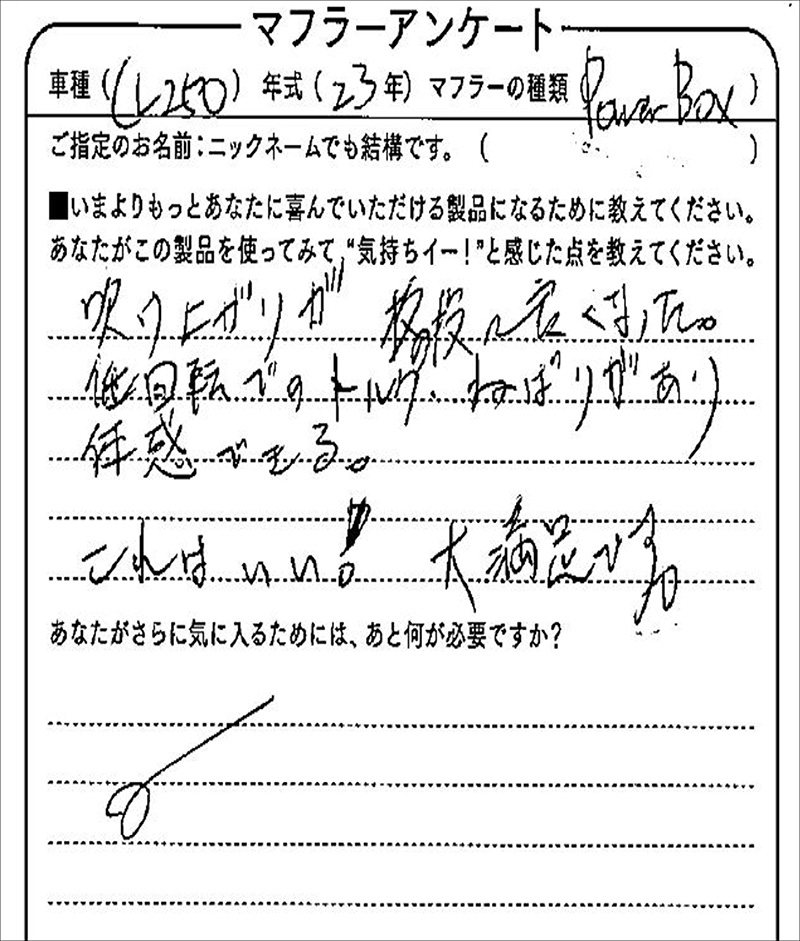 マフラーアンケート
車種(CL250) 年式(23年) マフラーの種類 Power Box)
ご指定のお名前:ニックネームでも結構です。( )
■いまよりもっとあなたに喜んでいただける製品になるために教えてください。
あなたがこの製品を使ってみて、"気持ちイー!"と感じた点を教えてください。
吹け上がりが 格段に良くなった。
低回転でのトルク、ねばりがあり
体感できる。
これはいい! 大満足です。
あなたがさらに気に入るためには、あと何が必要ですか?